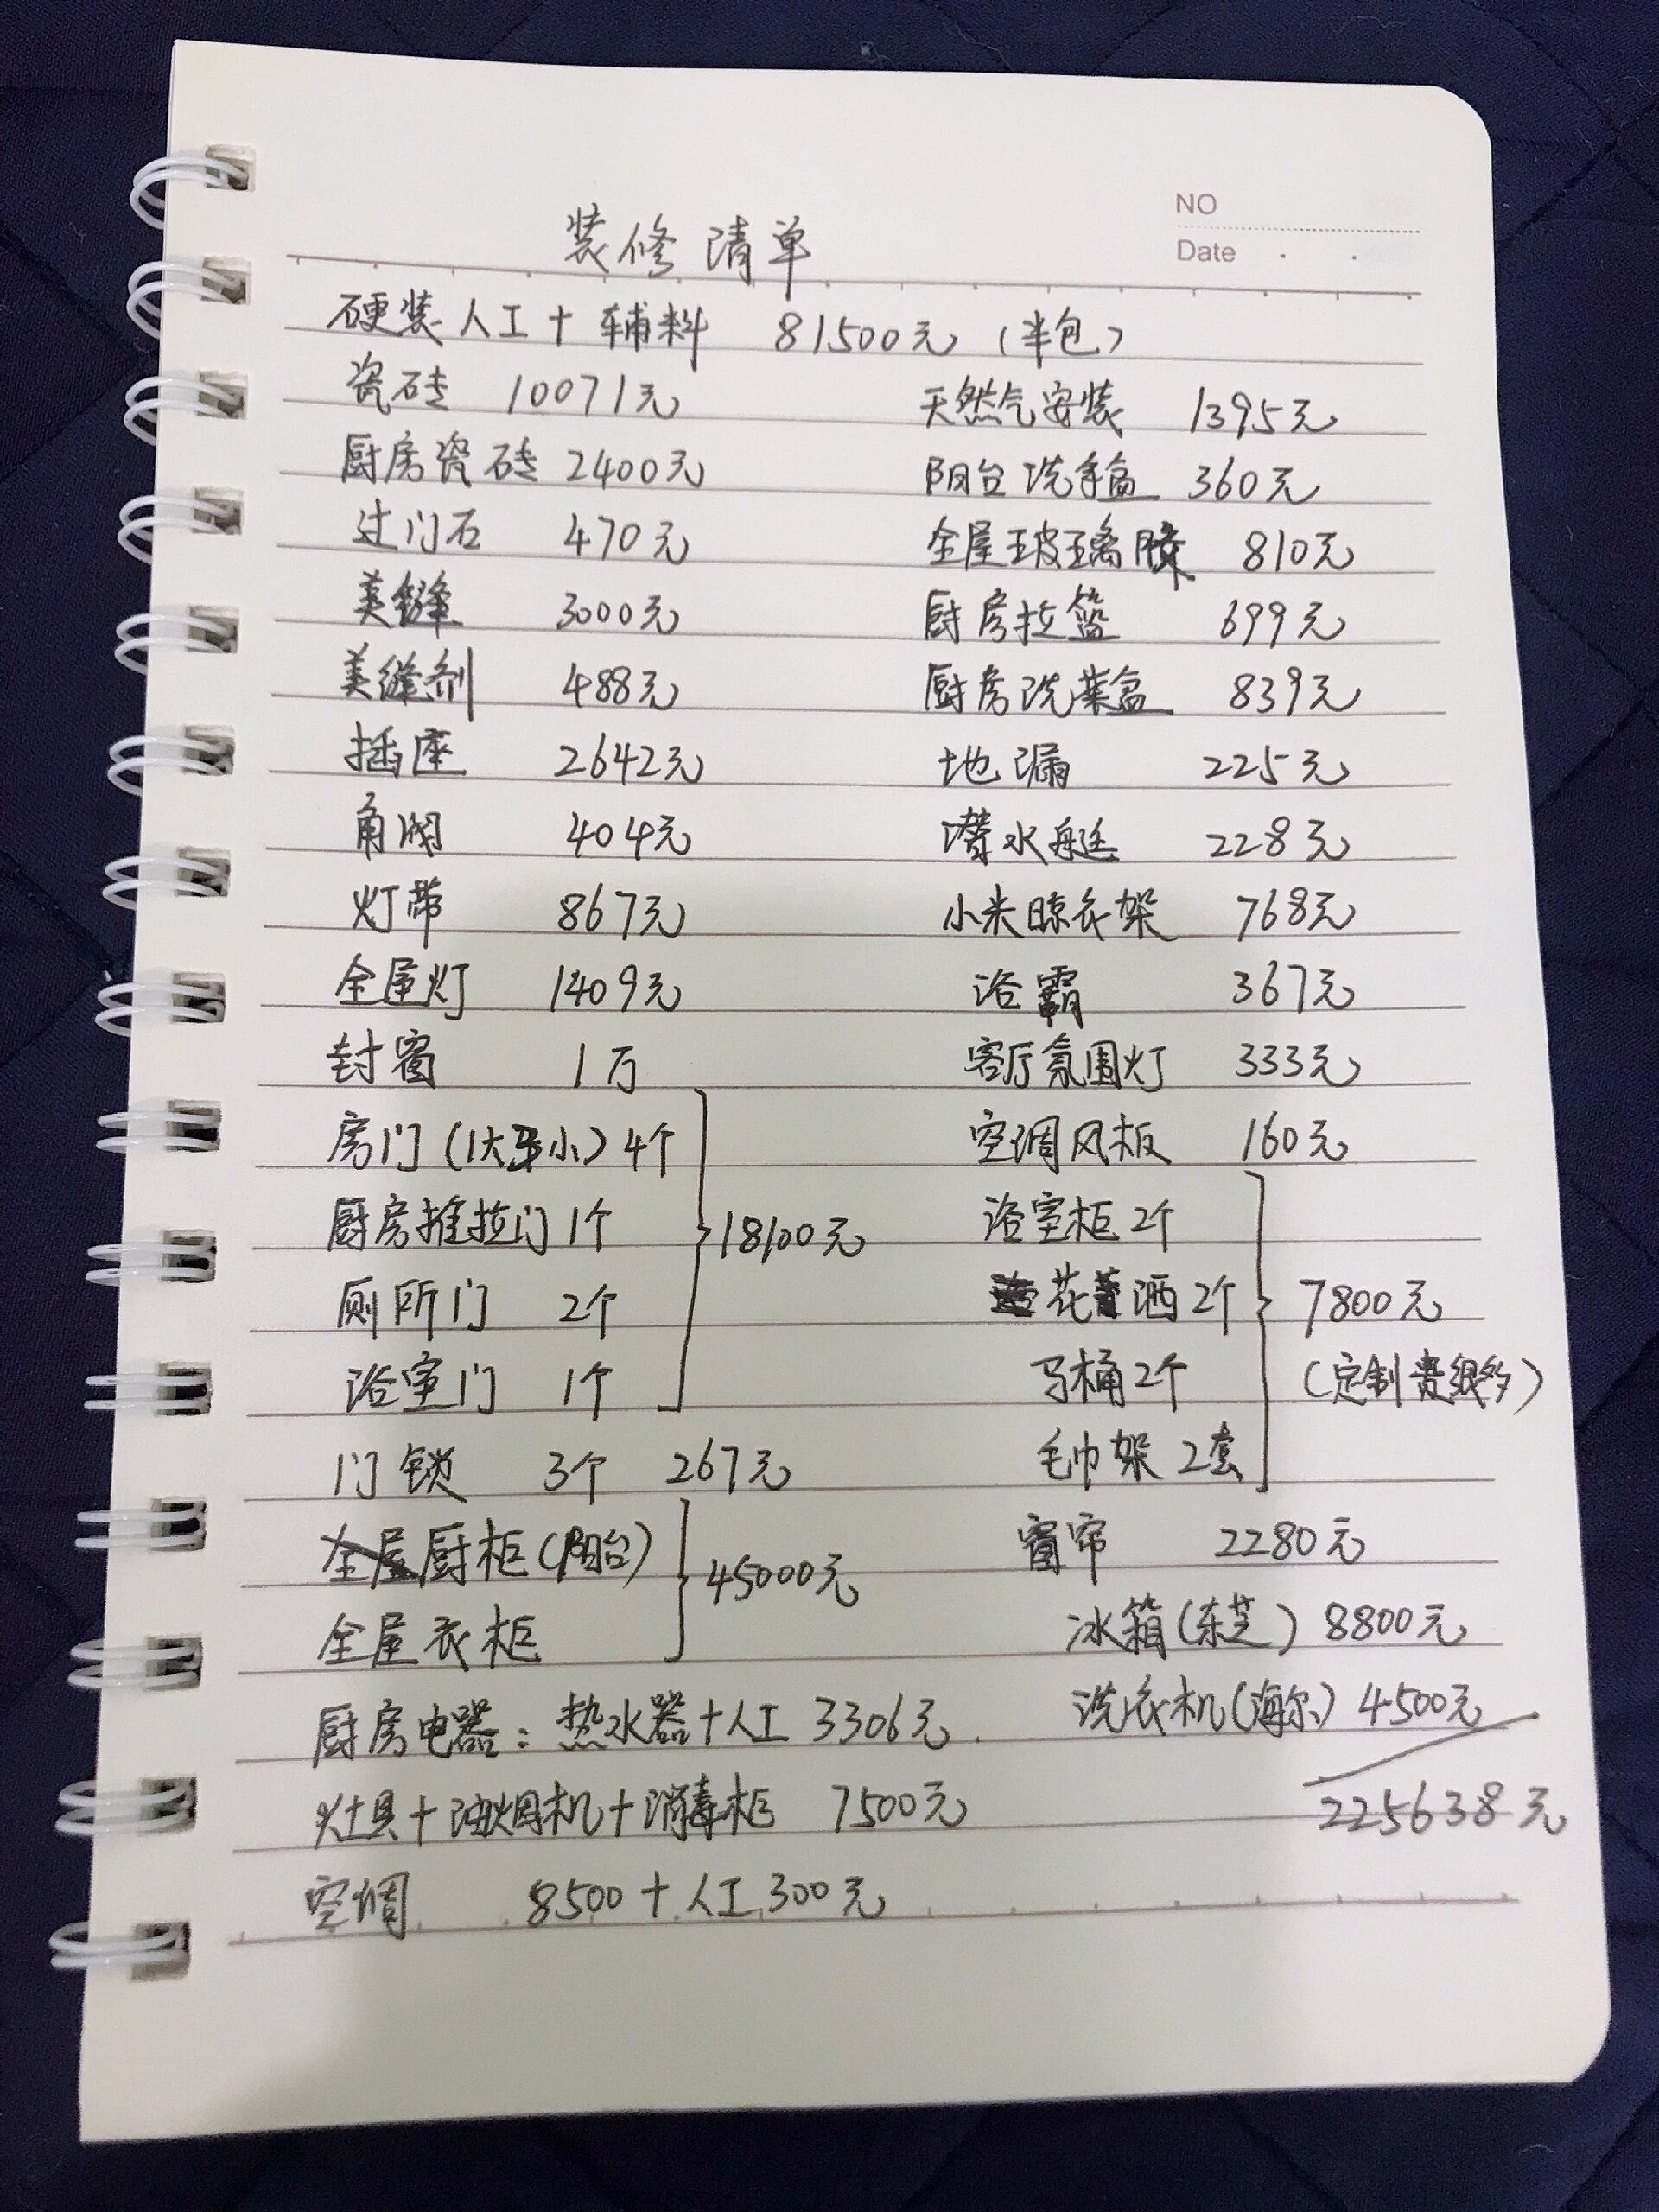 NO
Date
装修清单
硬装人工+辅料 81500元（半包）
瓷砖 10071元
厨房瓷砖 2400元
过门石 470元
美缝 3000元
美缝剂 488元
插座 2642元
角阀 404元
灯带 867元
全屋灯 1409元
封窗 1万
房门（1大3小）4个
厨房推拉门 1个
厕所门 2个
浴室门 1个
18100元
门锁 3个 267元
厨柜（阳台）
全屋衣柜
45000元
厨房电器：热水器+人工 3306元
灶具+油烟机+消毒柜 7500元
空调 8500+人工300元
天然气安装 1395元
阳台洗手盆 360元
全屋玻璃胶 810元
厨房拉篮 699元
厨房洗菜盆 839元
地漏 225元
潜水艇 228元
小米晾衣架 768元
浴霸 367元
客厅氛围灯 333元
空调风板 160元
浴室柜 2个
花洒 2个
马桶 2个
毛巾架 2套
7800元
（定制贵很多）
窗帘 2280元
冰箱（东芝）8800元
洗衣机（海尔）4500元
225638元